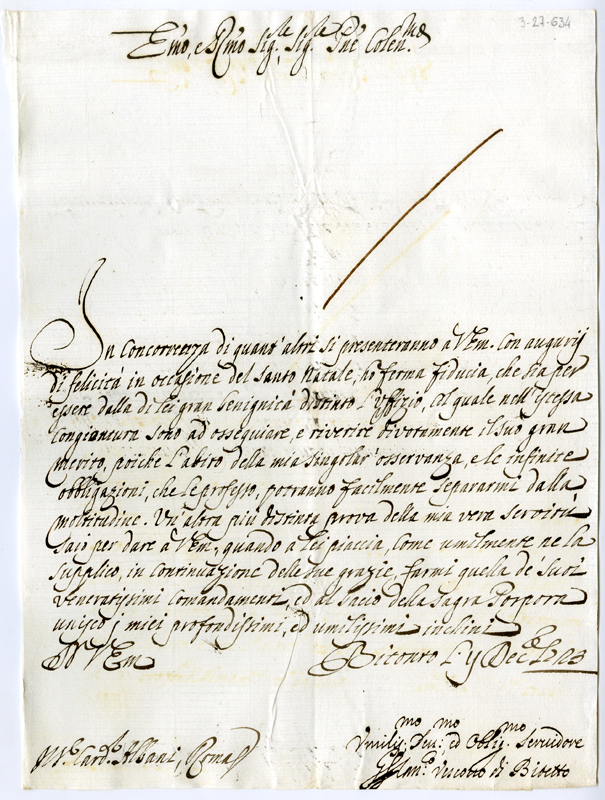 3-27-634
Emo, e Rmo Sig.r, Sig.r Pne Colen.mo
In Concorrenza di quant'altri si presenteranno à VEm. con augurij
di felicità in occasione del Santo Natale, hò ferma fiducia, che sia per
essere dalla di lei gran benignità distinto l'uffizio, col quale nell'istessa
Congiontura sono ad ossequiare, e riverire divotamente il suo gran
merito, poiche l'abito della mia singolar'osservanza, e le infinite
obbligazioni, che le professo, potranno facilmente separarmi dalla
moltitudine. Un'altra più distinta prova della mia vera servitù
saró per dare a VEm., quando a lei piaccia, come umilmente ne la
supplico, in continuazione delle sue grazie, farmi quella de' suoi
veneratissimi comandamenti, ed al bacio della sagra Porpora
unisco i miei profondissimi, ed umilissimi inchini
D VEm
Bitonto Decbre
Card.l Albani, Roma
Umilis.mo Ser.mo ed Oblig.mo Servidore
Vescovo di Bitetto